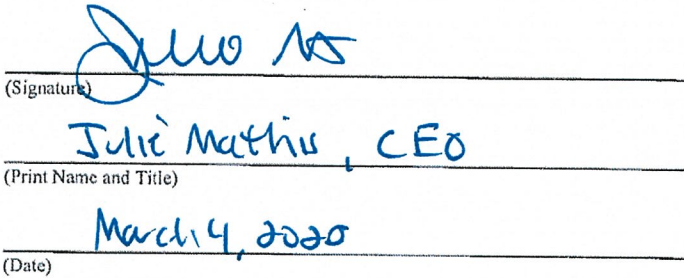 (Signature)
Julie Mathis, CEO
(Print Name and Title)
March 4, 2020
(Date)